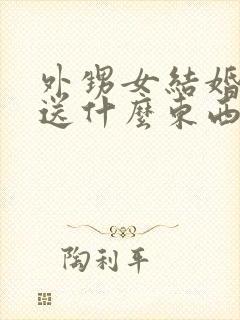 外甥女結婚
送什麼東西
陶利平